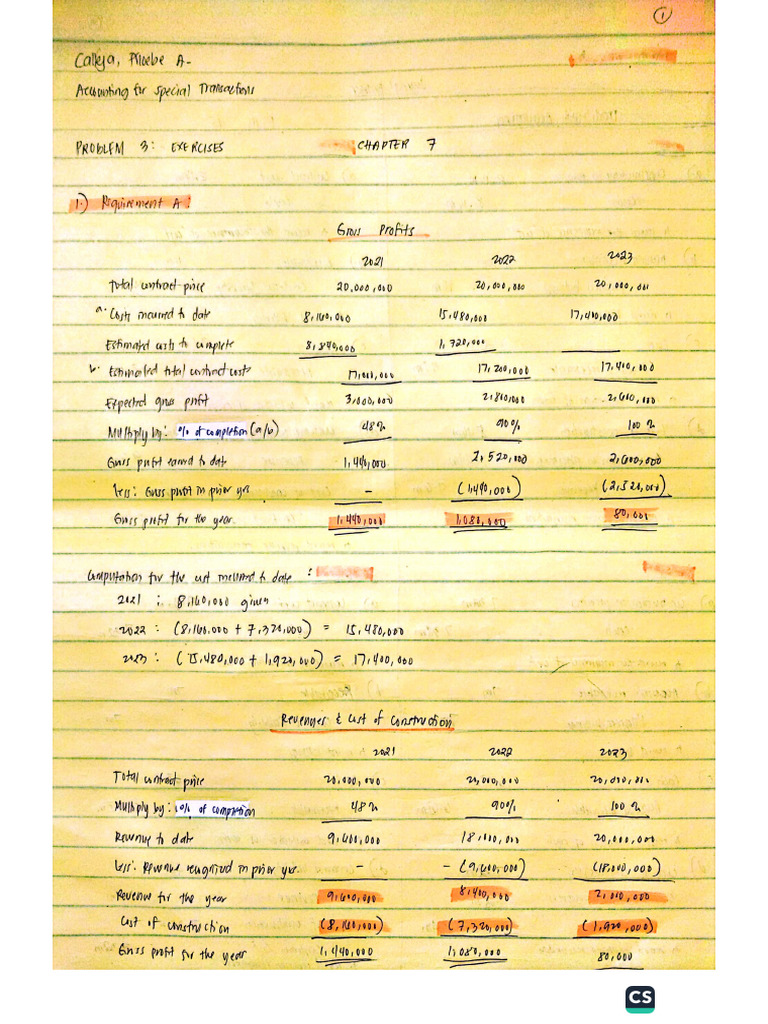 1
Calleja, Phoebe A.
Accounting for Special Transactions
PROBLEM 3: EXERCISES CHAPTER 7
1.) Requirement A:
Gross Profits
2021 2022 2023
Total contract price 20,000,000 20,000,000 20,000,000
a. Costs incurred to date 8,160,000 15,480,000 17,400,000
Estimated costs to complete 8,840,000 1,720,000
b. Estimated total contract costs 17,000,000 17,200,000 17,400,000
Expected gross profit 3,000,000 2,800,000 2,600,000
Multiply by: % of completion (a/b) 48% 90% 100%
Gross profit earned to date 1,440,000 2,520,000 2,600,000
Less: Gross profit in prior yrs - (1,440,000) (2,520,000)
Gross profit for the year 1,440,000 1,080,000 80,000
Computation for the cost incurred to date :
2021 : 8,160,000 given
2022 : (8,160,000 + 7,320,000) = 15,480,000
2023 : (15,480,000 + 1,920,000) = 17,400,000
Revenues & Cost of Construction
2021 2022 2023
Total contract price 20,000,000 20,000,000 20,000,000
Multiply by: % of completion 48% 90% 100%
Revenue to date 9,600,000 18,000,000 20,000,000
Less: Revenue recognized in prior yrs. - - (9,600,000) (18,000,000)
Revenue for the year 9,600,000 8,400,000 2,000,000
Cost of construction (8,160,000) (7,320,000) (1,920,000)
Gross profit for the year 1,440,000 1,080,000 80,000
CS